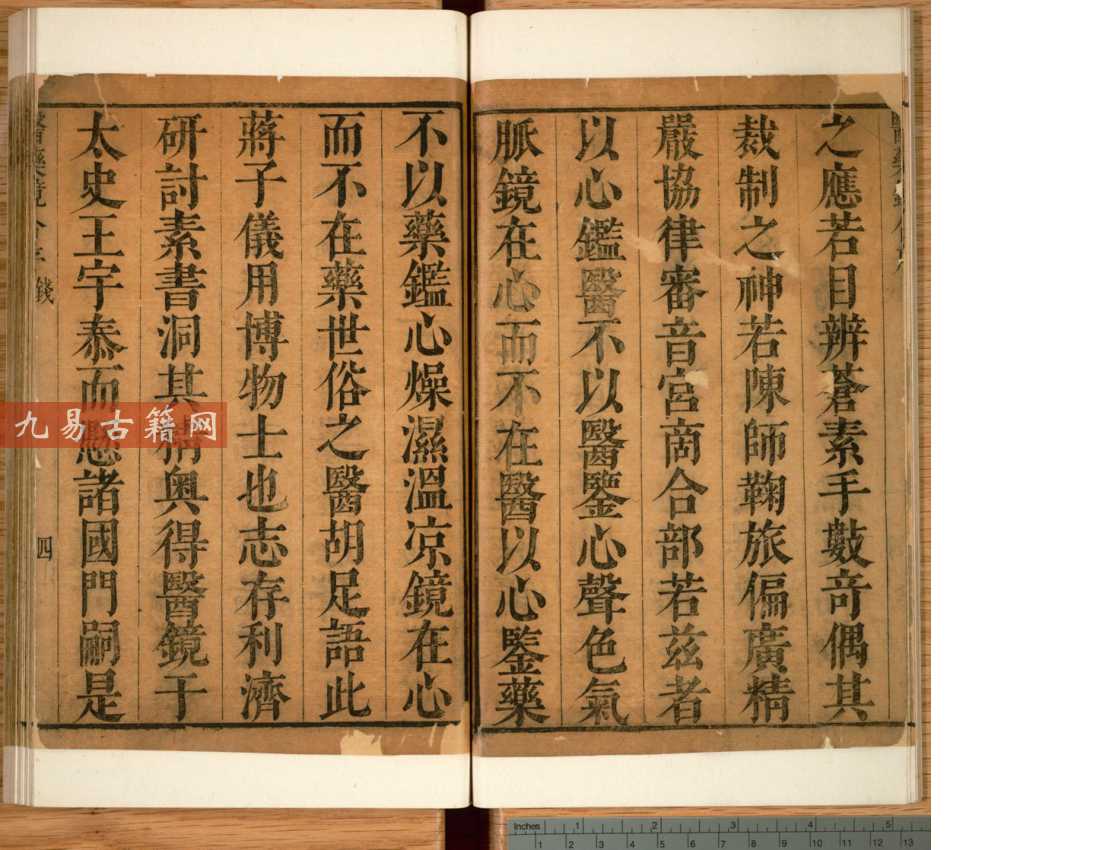 之應若目辨蒼素手數奇偶其
裁制之神若陳師鞠旅偏廣精
嚴協律審音宮商合部若玆者
以心鑑醫不以醫鑒心聲色氣
脈鏡在心而不在醫以心鑒藥
不以藥鑑心燥濕溫凉鏡在心
而不在藥世俗之醫胡足語此
蔣子儀用博物士也志存利濟
研討素書洞其精奥得醫鏡于
太史王宇泰而懸諸國門嗣是
錢
四
九易古籍网
Inches 1 2 3 4 5
1 2 3 4 5 6 7 8 9 10 11 12 13